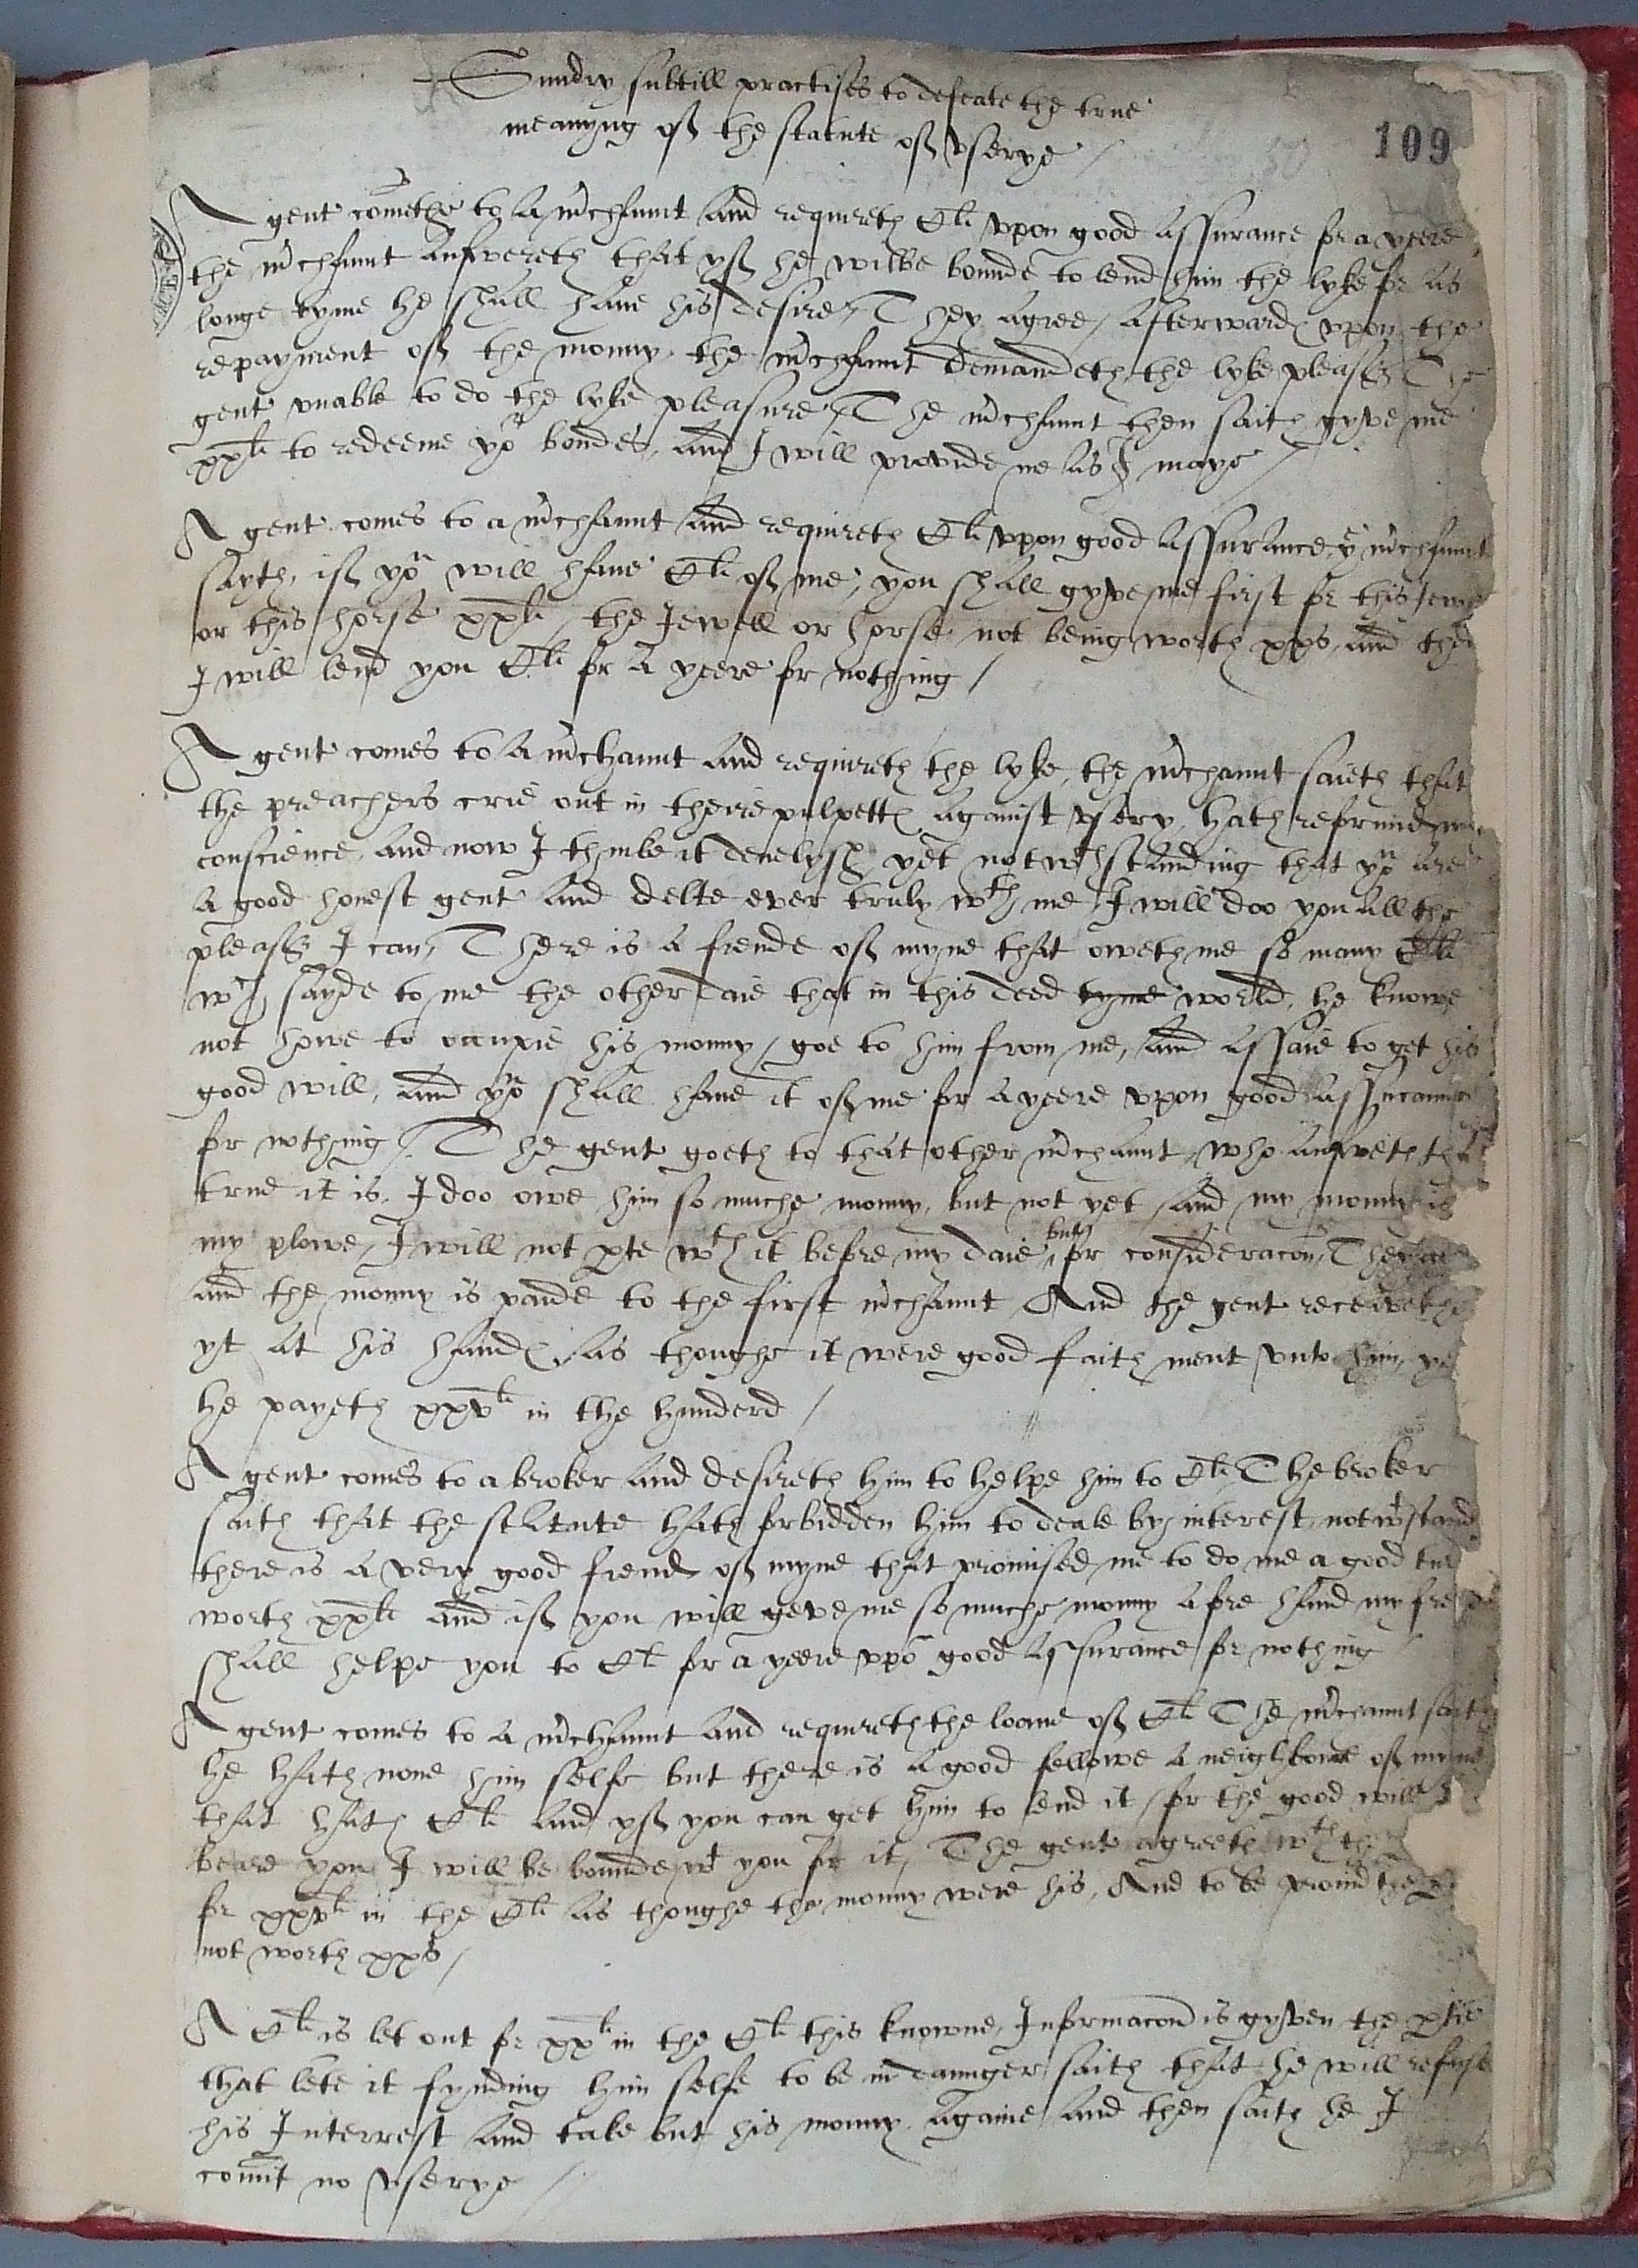 Sundry subtill practises to defeate the true
meanyng off the statute off vserye /
109
A gent comethe to a mrchaunt and requireth Cli vpon good assurance for a yeere
the mrchaunt answereth that yff he wilbe bounde to lend him the lyke for as
longe tyme he shall haue his desire / They agree / afterwardes vpon the
repayment off the monny the mrchaunt demandeth the lyke pleasure The
gent vnable to do the lyke pleasure / The mrchaunt then saith gyve me
xxli to redeeme yor bondes, and I will provide me as I maye /
A gent comes to a mrchaunt and requireth Cli vpon good assurance, ye mrchaunt
sayth, iff you will haue Cli off me, you shall gyve me first for this Jewell
or this horse xxli / the Jewell or horse not being worth xxs, and then
I will lend you Cli for a yeere for nothing /
A gent comes to a mrchaunt and requireth the lyke, the mrchaunt saieth that
the preachers crie out in theire pulpettes against vsery, hath reformed my
conscience, and now I thinke it develysh, yet notwthstanding that you are
a good honest gent and delte ever truly wth me, I will doo you all the
pleasure I can, There is a frende off myne that oweth me so many Cli
wch sayde to me the other daie that in this deed tyme world, he knowe
not howe to occupie his monny / goe to him from me, and assaie to get his
good will, and you shall haue it off me for a yeere vpon good assuraunce
for nothing / The gent goeth to that other mrchaunt, who answreth that
true it is, I doo owe him so muche monny, but not yet, and my monny is
my plowe, I will not pte wth it before my daie, but for consideracon, They
and the monny is paide to the first mrchaunt And the gent receiveth
yt at his handes, as thoughe it were good faith ment vnto him, ye
he payeth xxvli in the hunderd /
A gent comes to a broker and desireth him to helpe him to Cli, The broker
saith that the statute hath forbidden him to deale by interest, notwtstand
there is a very good frend off myne that promised me to do me a good tur
worth xxli and iff you will geve me so muche monny afore hand my frende
shall helpe you to Cli for a yeere vpō good assurance for nothing /
A gent comes to a mrchaunt and requireth the loane off Cli The mrchaunt saith
he hath none him selfe but there is a good fellowe a neighboure off myne
that hath Cli and yff you can get him to lend it, for the good will I
beare you I will be bounde wt you for it, The gent agreeth wth the
for xxvli in the Cli as thoughe the monny were his, And to be
not worth xxs /
A Cli is let out for xxli in the Cli this knowne, Informacon is gyven the ptie
that lete it fynding him selfe to be in daunger saith that he will refuse
his Interrest and take but his monny againe and then saith he I
comit no vserye /